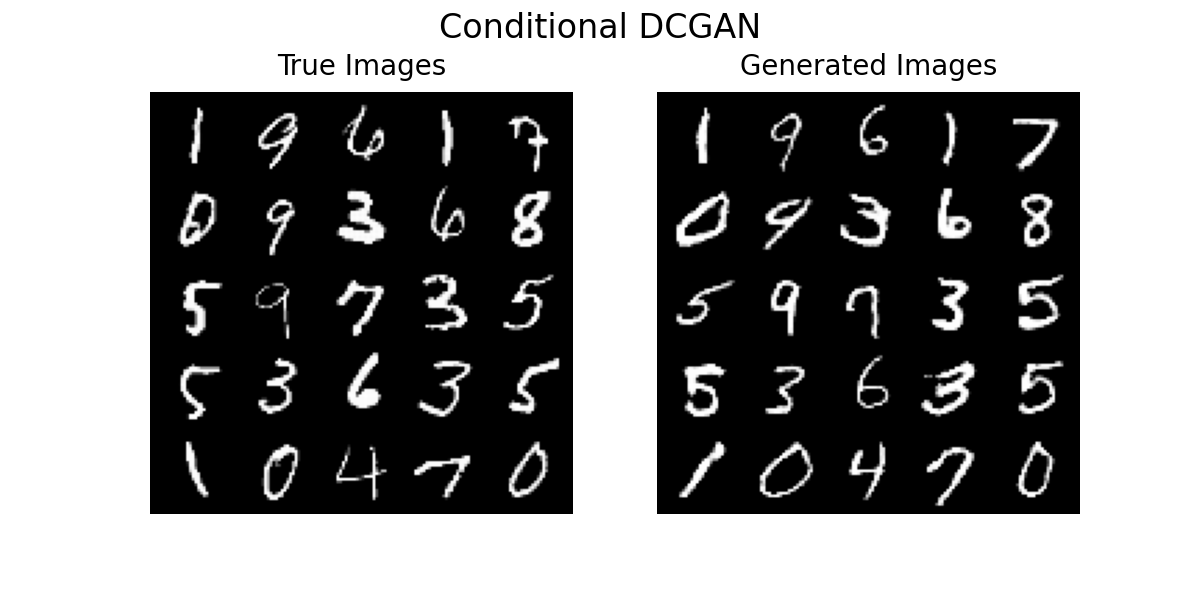 Conditional DCGAN
True Images
1 9 6 1 7
0 9 3 6 8
5 9 7 3 5
5 3 6 3 5
1 0 4 7 0
Generated Images
1 9 6 1 7
0 9 3 6 8
5 9 7 3 5
5 3 6 3 5
1 0 4 7 0